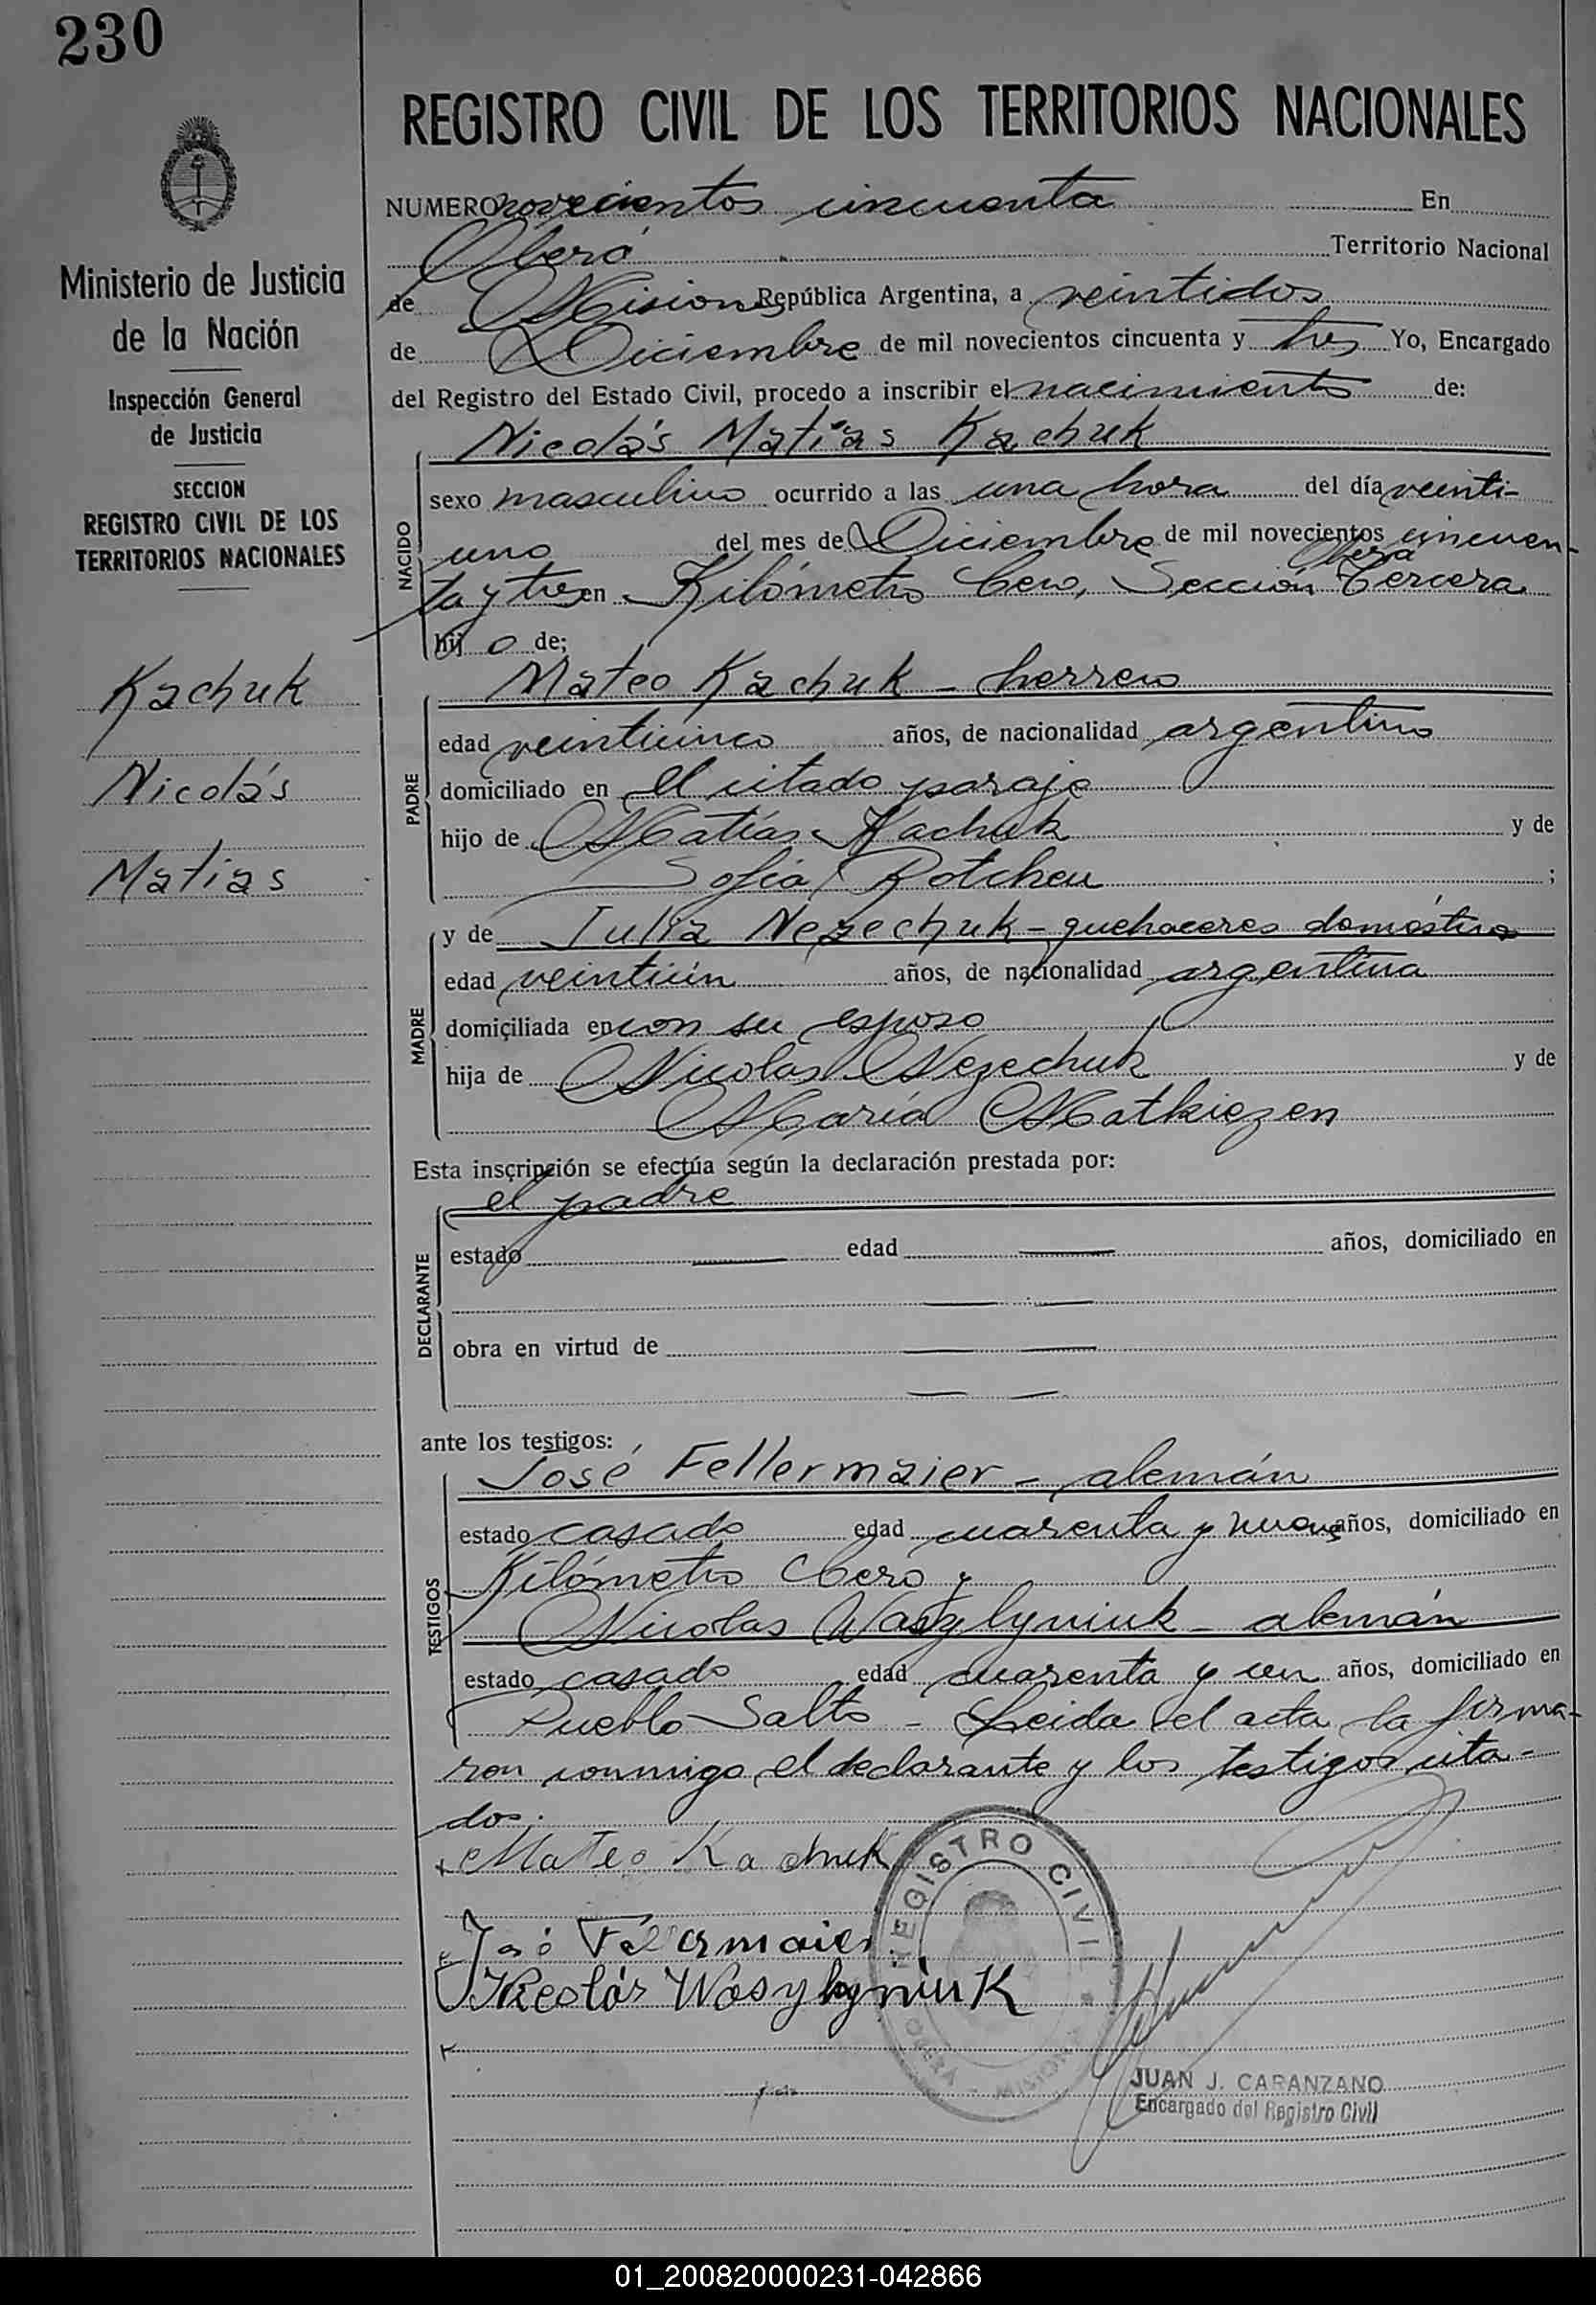 230
REGISTRO CIVIL DE LOS TERRITORIOS NACIONALES
Ministerio de Justicia
de la Nación
Inspección General
de Justicia
SECCION
REGISTRO CIVIL DE LOS
TERRITORIOS NACIONALES
Kachuk
Nicolás
Matias
NUMERO novecientos cincuenta En
Oberá Territorio Nacional
de Misiones República Argentina, a veintidos
de Diciembre de mil novecientos cincuenta y tres Yo, Encargado
del Registro del Estado Civil, procedo a inscribir el nacimiento de:
Nicolás Matías Kachuk
NACIDO
sexo masculino ocurrido a las una hora del día veinti-
uno del mes de Diciembre de mil novecientos cincuen-
Oberá
ta y tres en Kilómetro Cero, Sección Tercera
hijo de;
Mateo Kachuk - herrero
PADRE
edad veinticinco años, de nacionalidad argentino
domiciliado en el citado paraje
hijo de Matías Kachuk y de
Sofia Rotcheu ;
y de Julia Nezechuk - quehaceres domésticos
MADRE
edad veintiún años, de nacionalidad argentina
domiciliada en con su esposo
hija de Nicolás Nezechuk y de
María Matkiezen
Esta inscripción se efectúa según la declaración prestada por:
el padre
DECLARANTE
estado edad años, domiciliado en
obra en virtud de
ante los testigos:
José Fellermaier - alemán
TESTIGOS
estado casado edad cuarenta y nueve años, domiciliado en
Kilómetro Cero y
Nicolas Waszlyniuk - alemán
estado casado edad cuarenta y un años, domiciliado en
Pueblo Salto - Leida el acta la firma-
ron conmigo el declarante y los testigos cita-
dos.
Mateo Kachuk
José Fellermaier
Nicolás Wasylyniuk
REGISTRO CIVIL
OBERÁ - MISIONES
JUAN J. CARANZANO
Encargado del Registro Civil
01_200820000231-042866